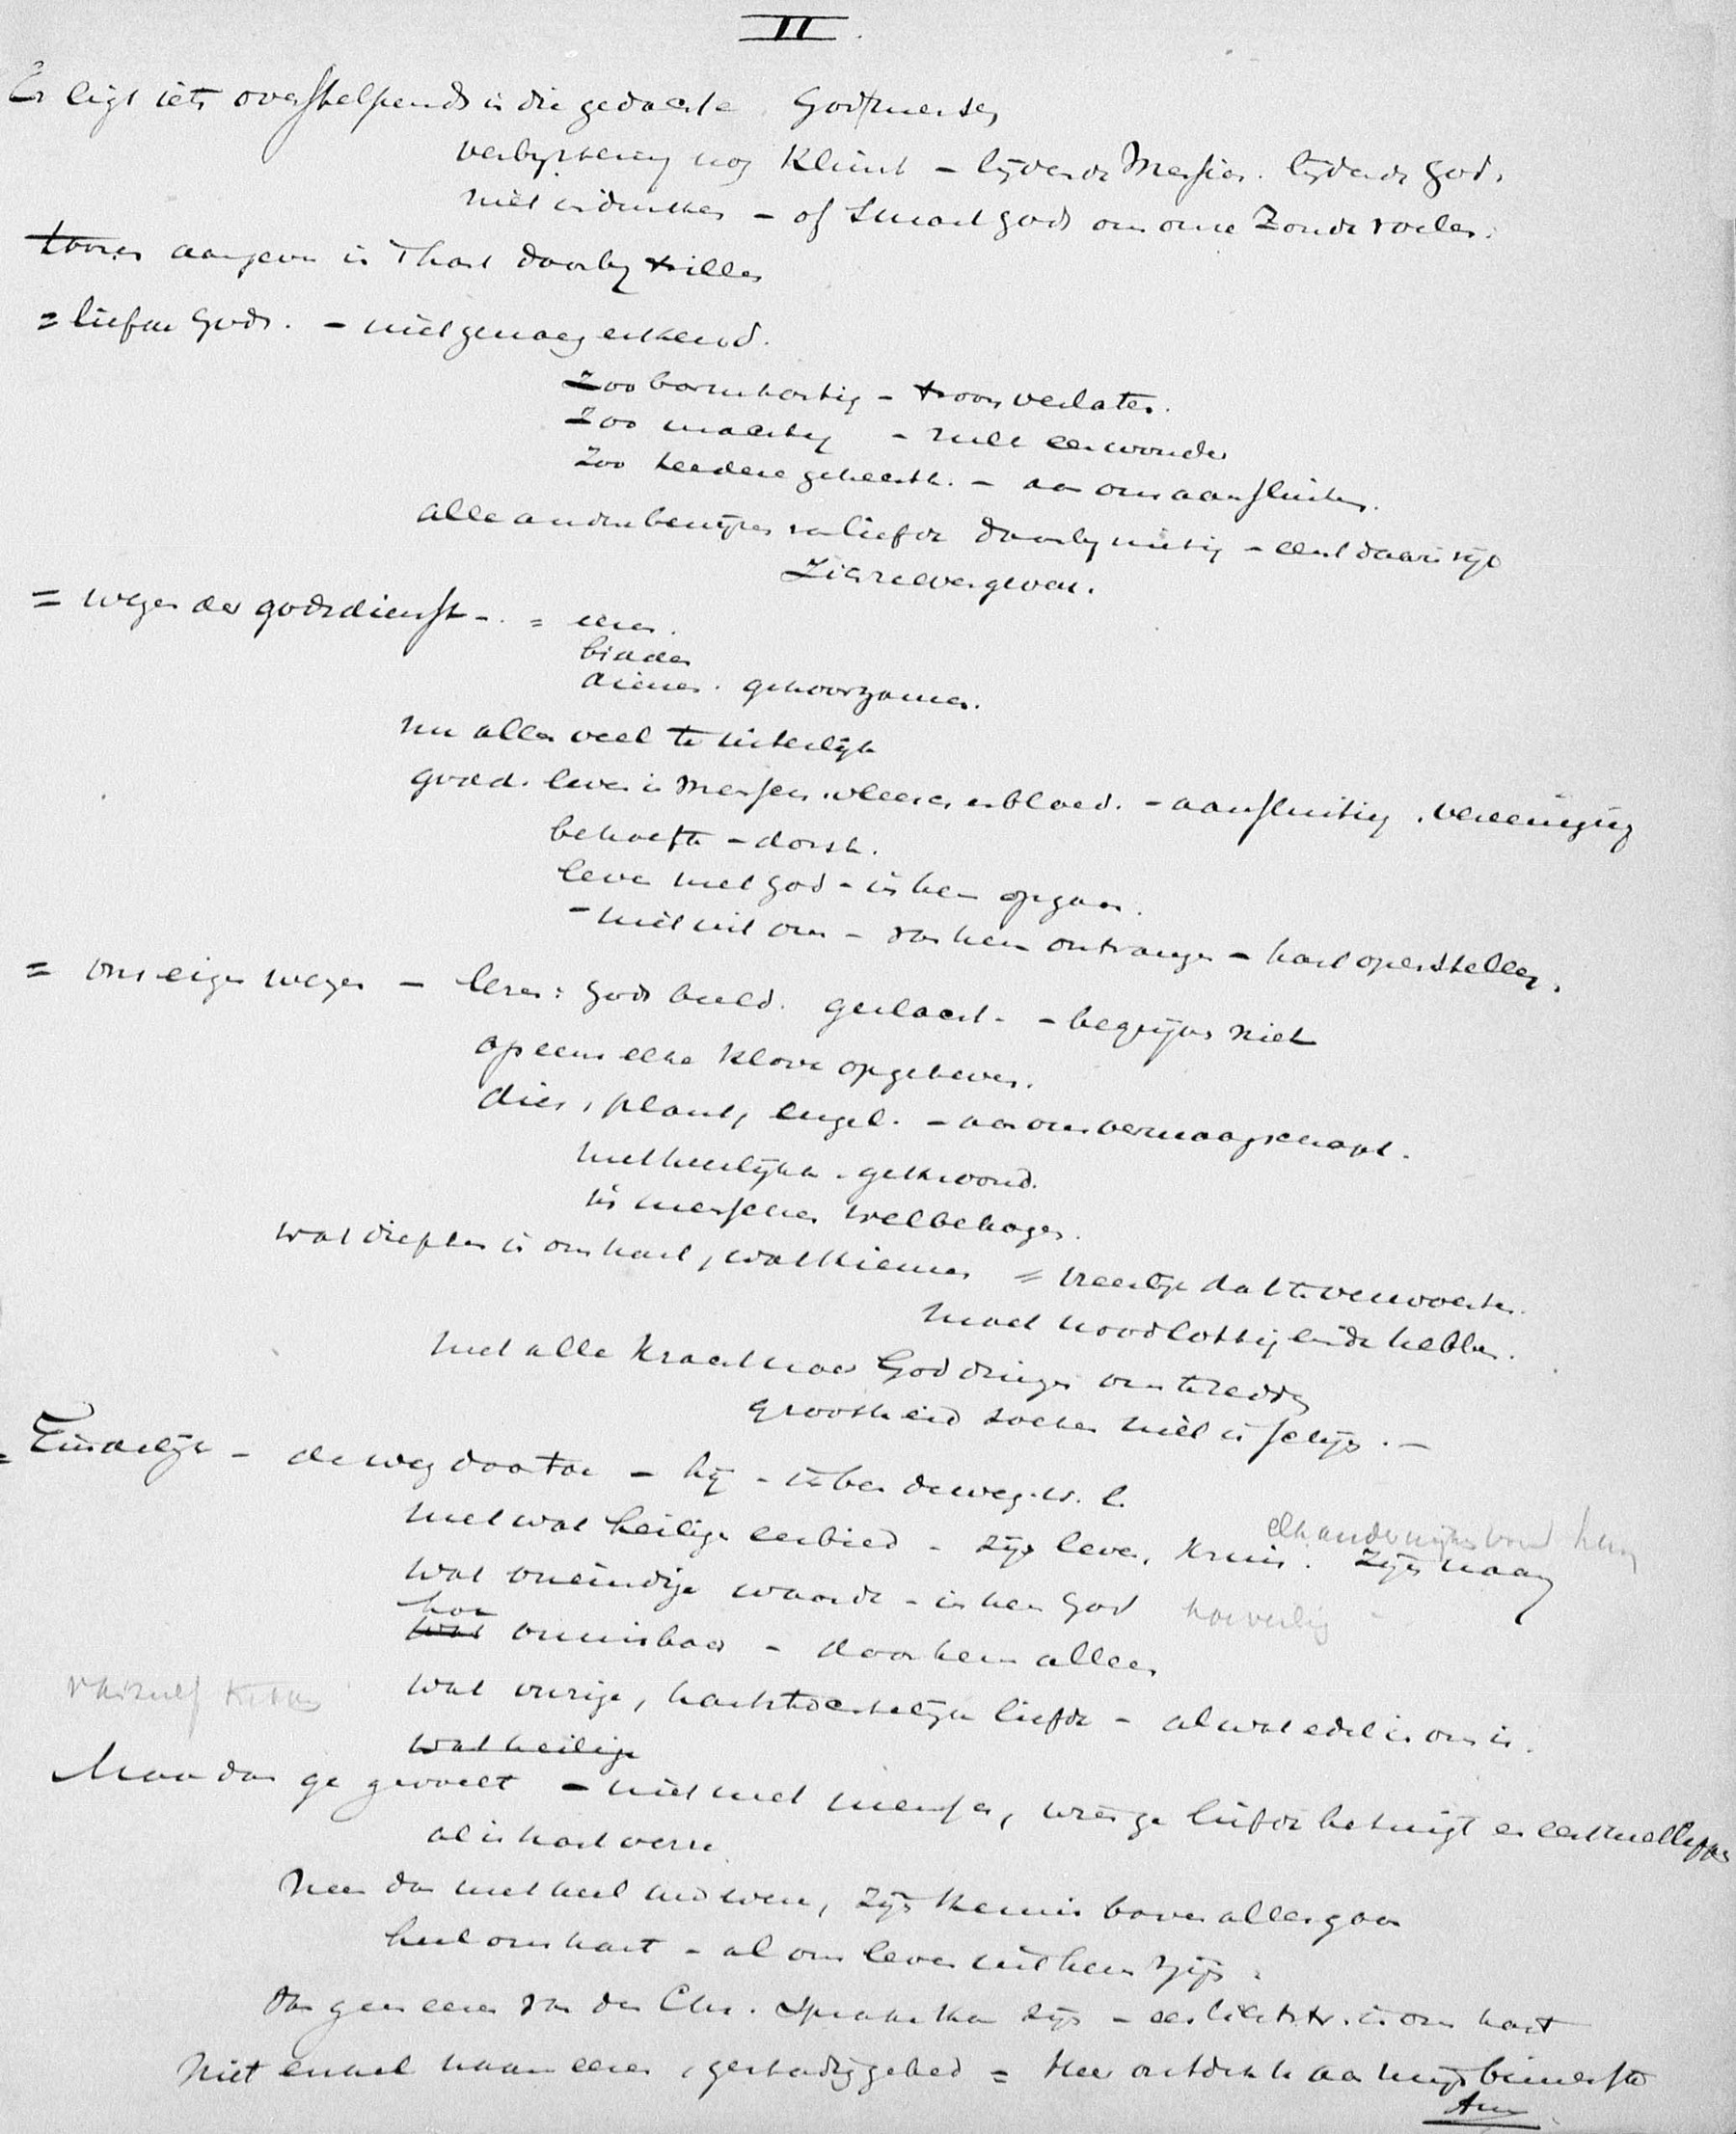 II.
Er ligt iets overstelpends in die gedachte Godmensch
verbijstering nog klimt - lijdende Messias. lijdende God.
niet indenken - of smart Gods om onze zonde voelen.
tooren aangeven in 't hart daarbij trillen
= liefde Gods. - niet genoeg erkend.
Zoo barmhartig - troon verlaten.
Zoo machtig - zulk een wonder
Zoo teedere gehecht. - aan ons aansluiten.
alle andere bewijzen van liefde daarbij nietig - eerst daarin zijn
Zichzelven geven.
= wezen der godsdienst - . = eeren.
binden
dienen. gehoorzamen.
nu alles veel te uiterlijk
godd. leven in menschen vleesch en bloed. - aansluiting. vereeniging
behoefte - dorst.
leven met God - in hem opgaan.
- niet uit ons - van hem ontvangen - hart openstellen.
= ons eigen wezen - leren: Gods beeld. geslacht - begrijpen niet
opeens elke klove opgeheven.
dier, plant, engel. - aan ons vermaagschapt.
met heerlijkh. gekroond.
in menschen welbehagen.
wat diepten in ons hart, wat kiemen = vreeslijk dat te verwoesten.
moet noodlottig einde hebben.
met alle kracht naar God dringen om te redden
grootheid zoeken niet in schijn. -
= Eindelijk - de weg daartoe - hij - ik ben de weg. w. l.
met wat heilige eerbied - zijn leven, kruis. zijn naam
wat oneindige waarde - in hem God hoe veilig
hoe
wat onmisbaar - door hem alleen
wat vurige, hartstochtelijke liefde - al wat edel in ons is.
wat heilige
Maar dan ge gevoelt - niet met menschen, wien ge liefde betuigt en eert met lippen
al is hart verre
Neen dan met heel uw wezen, zijn kennis boven alles gaan
heel ons hart - al ons leven uit hem zijn.
dan geen eeren van den Chr. sprake kan zijn - in ons hart
Niet enkel naam eeren, gestadig gebed = Heer ontdek U aan mijn binnenste
Amen